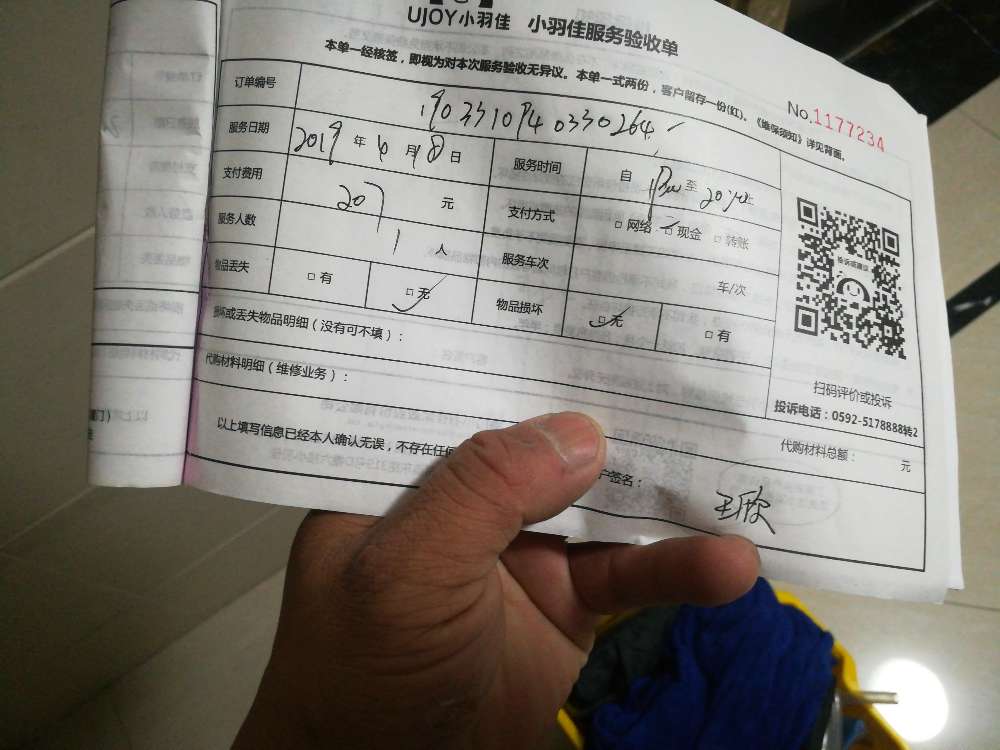 UJOY小羽佳 小羽佳服务验收单
本单一经核签，即视为对本次服务验收无异议。本单一式两份，客户留存一份(红)。《维保须知》详见背面。
No.1177234
订单编号
服务日期 2019 年 月 8 日 服务时间 自 至
支付费用 207 元 支付方式 □网络 □现金 □转账
服务人数 1 人 服务车次 车/次
物品丢失 □有 □无 物品损坏 □无 □有
损坏或丢失物品明细（没有可不填）：
代购材料明细（维修业务）：
扫码评价或投诉
投诉电话：0592-5178888转2
代购材料总额： 元
以上填写信息已经本人确认无误，不存在任何
户签名： 王欣